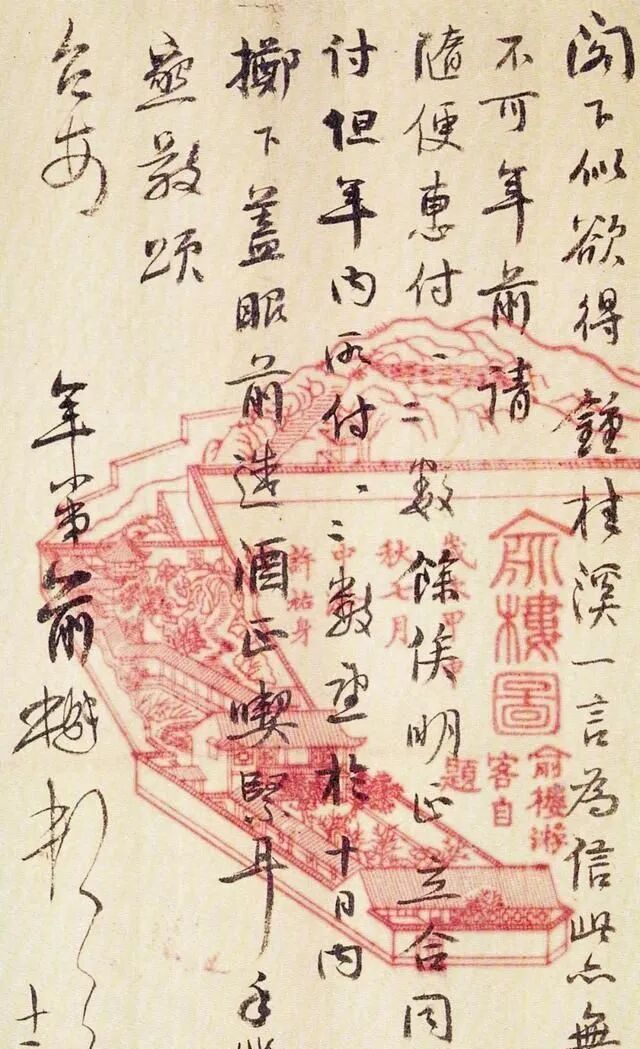 閣下似欲得鍾桂溪一言為信此亦無
不可年前請
隨便惠付一二數餘俟明正立合同
付但年內所付一二數望於十日內
擲下蓋眼前造酒正喫緊耳手
敬頌
台安
年小弟前
十二
俞樓圖
俞樓游
客自
題
秋七月
許祐身